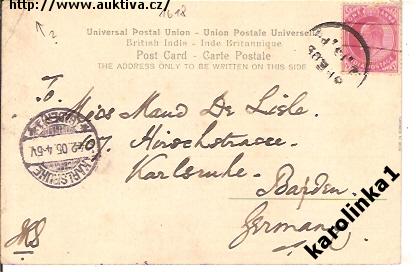 http://www.auktiva.cz/
1618
?
Universal Postal Union - Union Postale Universelle
British India - Inde Britannique
Post Card - Carte Postale
THE ADDRESS ONLY TO BE WRITTEN ON THIS SIDE
To.
Miss Maud De Lisle.
107. Hirschstrasse.
Karlsruhe.
Baden.
Germany
KARLSRUHE
2.05.4-5V.
(BADEN)
karolinka1